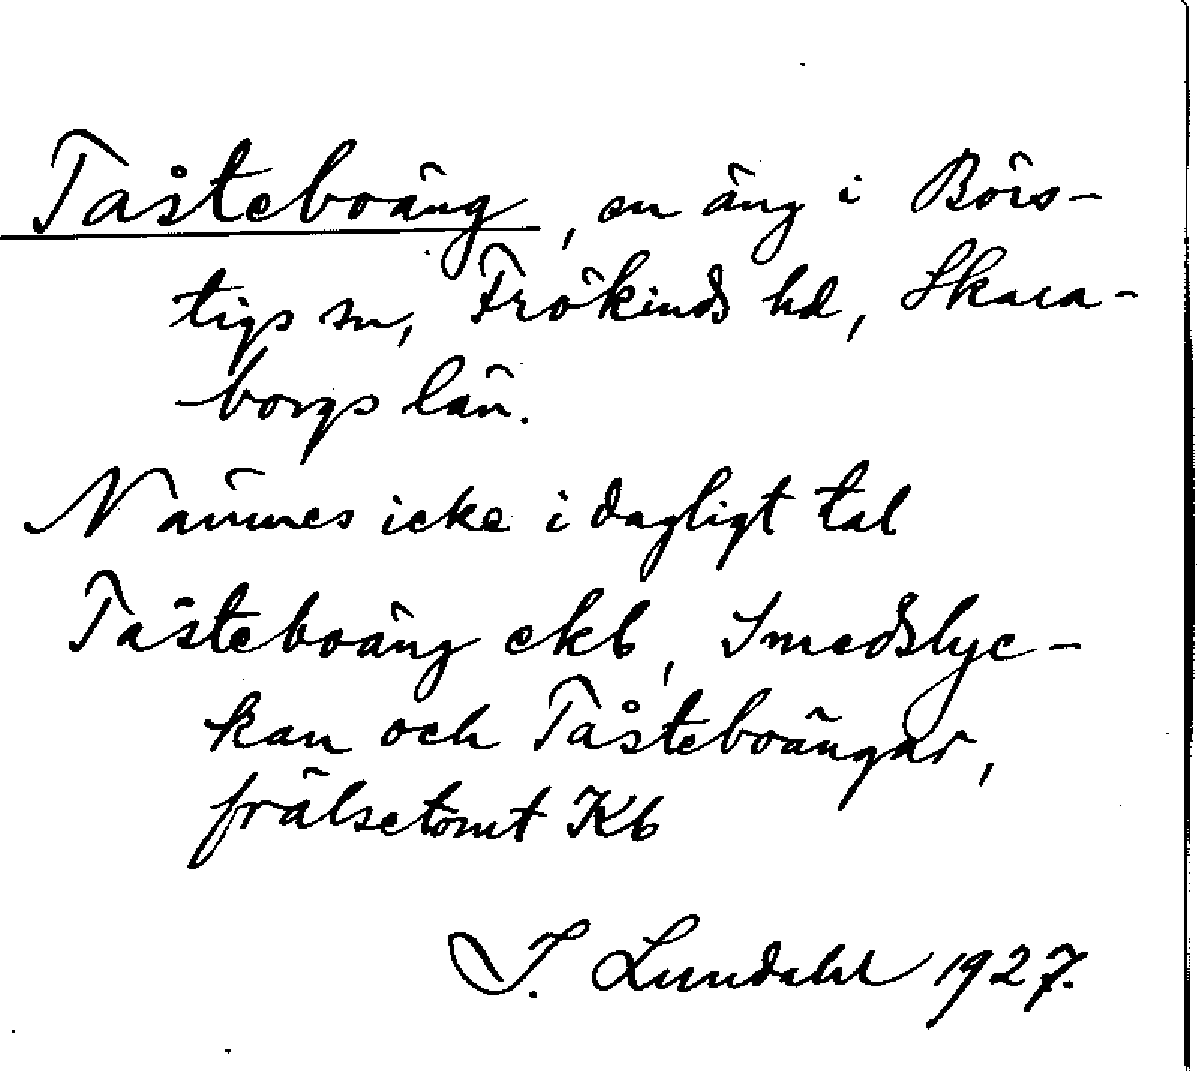 Tåsteboäng, en äng i Börs-
tigs sn, Frökinds hd, Skara-
borgs län.
Nämnes icke i dagligt tal
Tåsteboäng ekb, Smedslyc-
kan och Tåsteboängar,
frälsetomt Kb
I. Lundahl 1927.